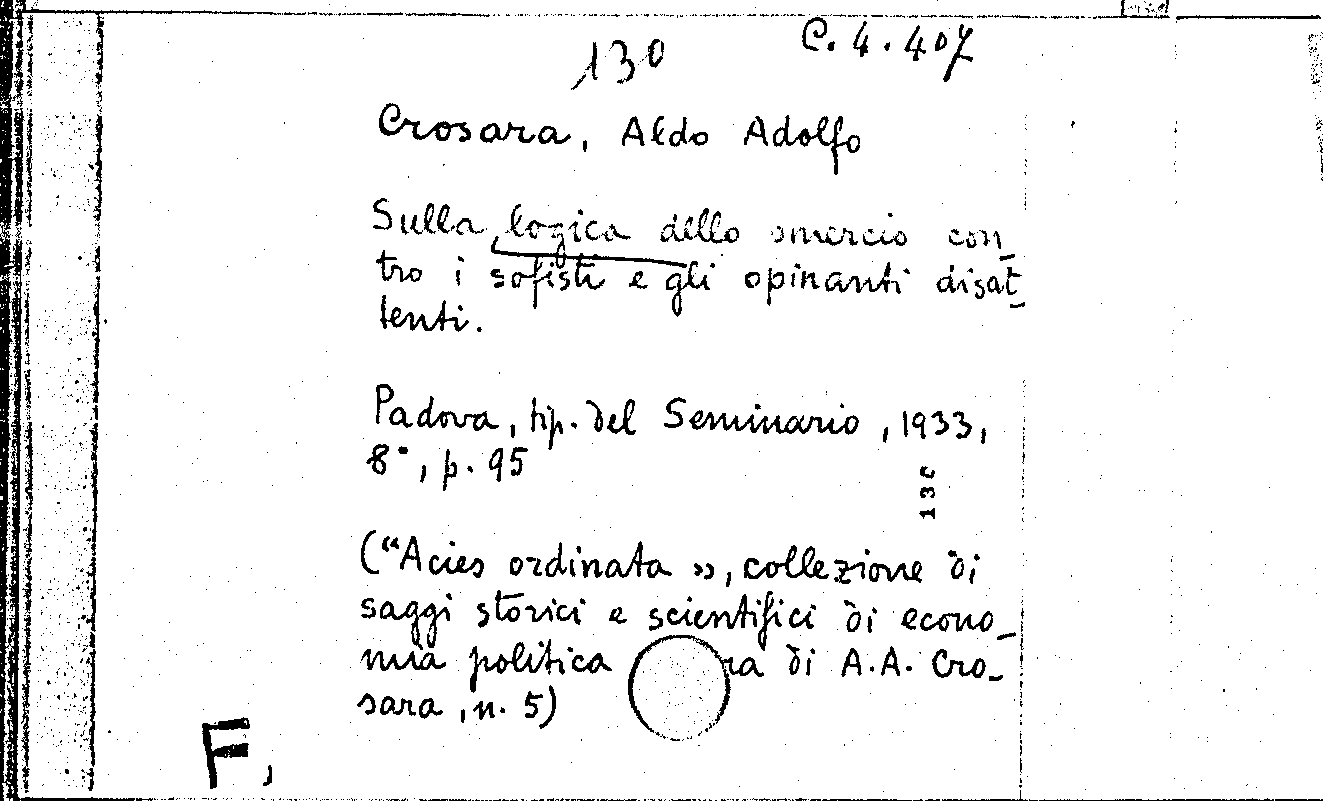 130 C. 4. 407
Crosara, Aldo Adolfo
Sulla logica dello smercio con-
tro i sofisti e gli opinanti disat-
tenti.
Padova, tip. del Seminario, 1933,
8°, p. 95
130
("Acies ordinata », collezione di
saggi storici e scientifici di econo-
mia politica ra di A.A. Cro-
sara, n. 5)
F,